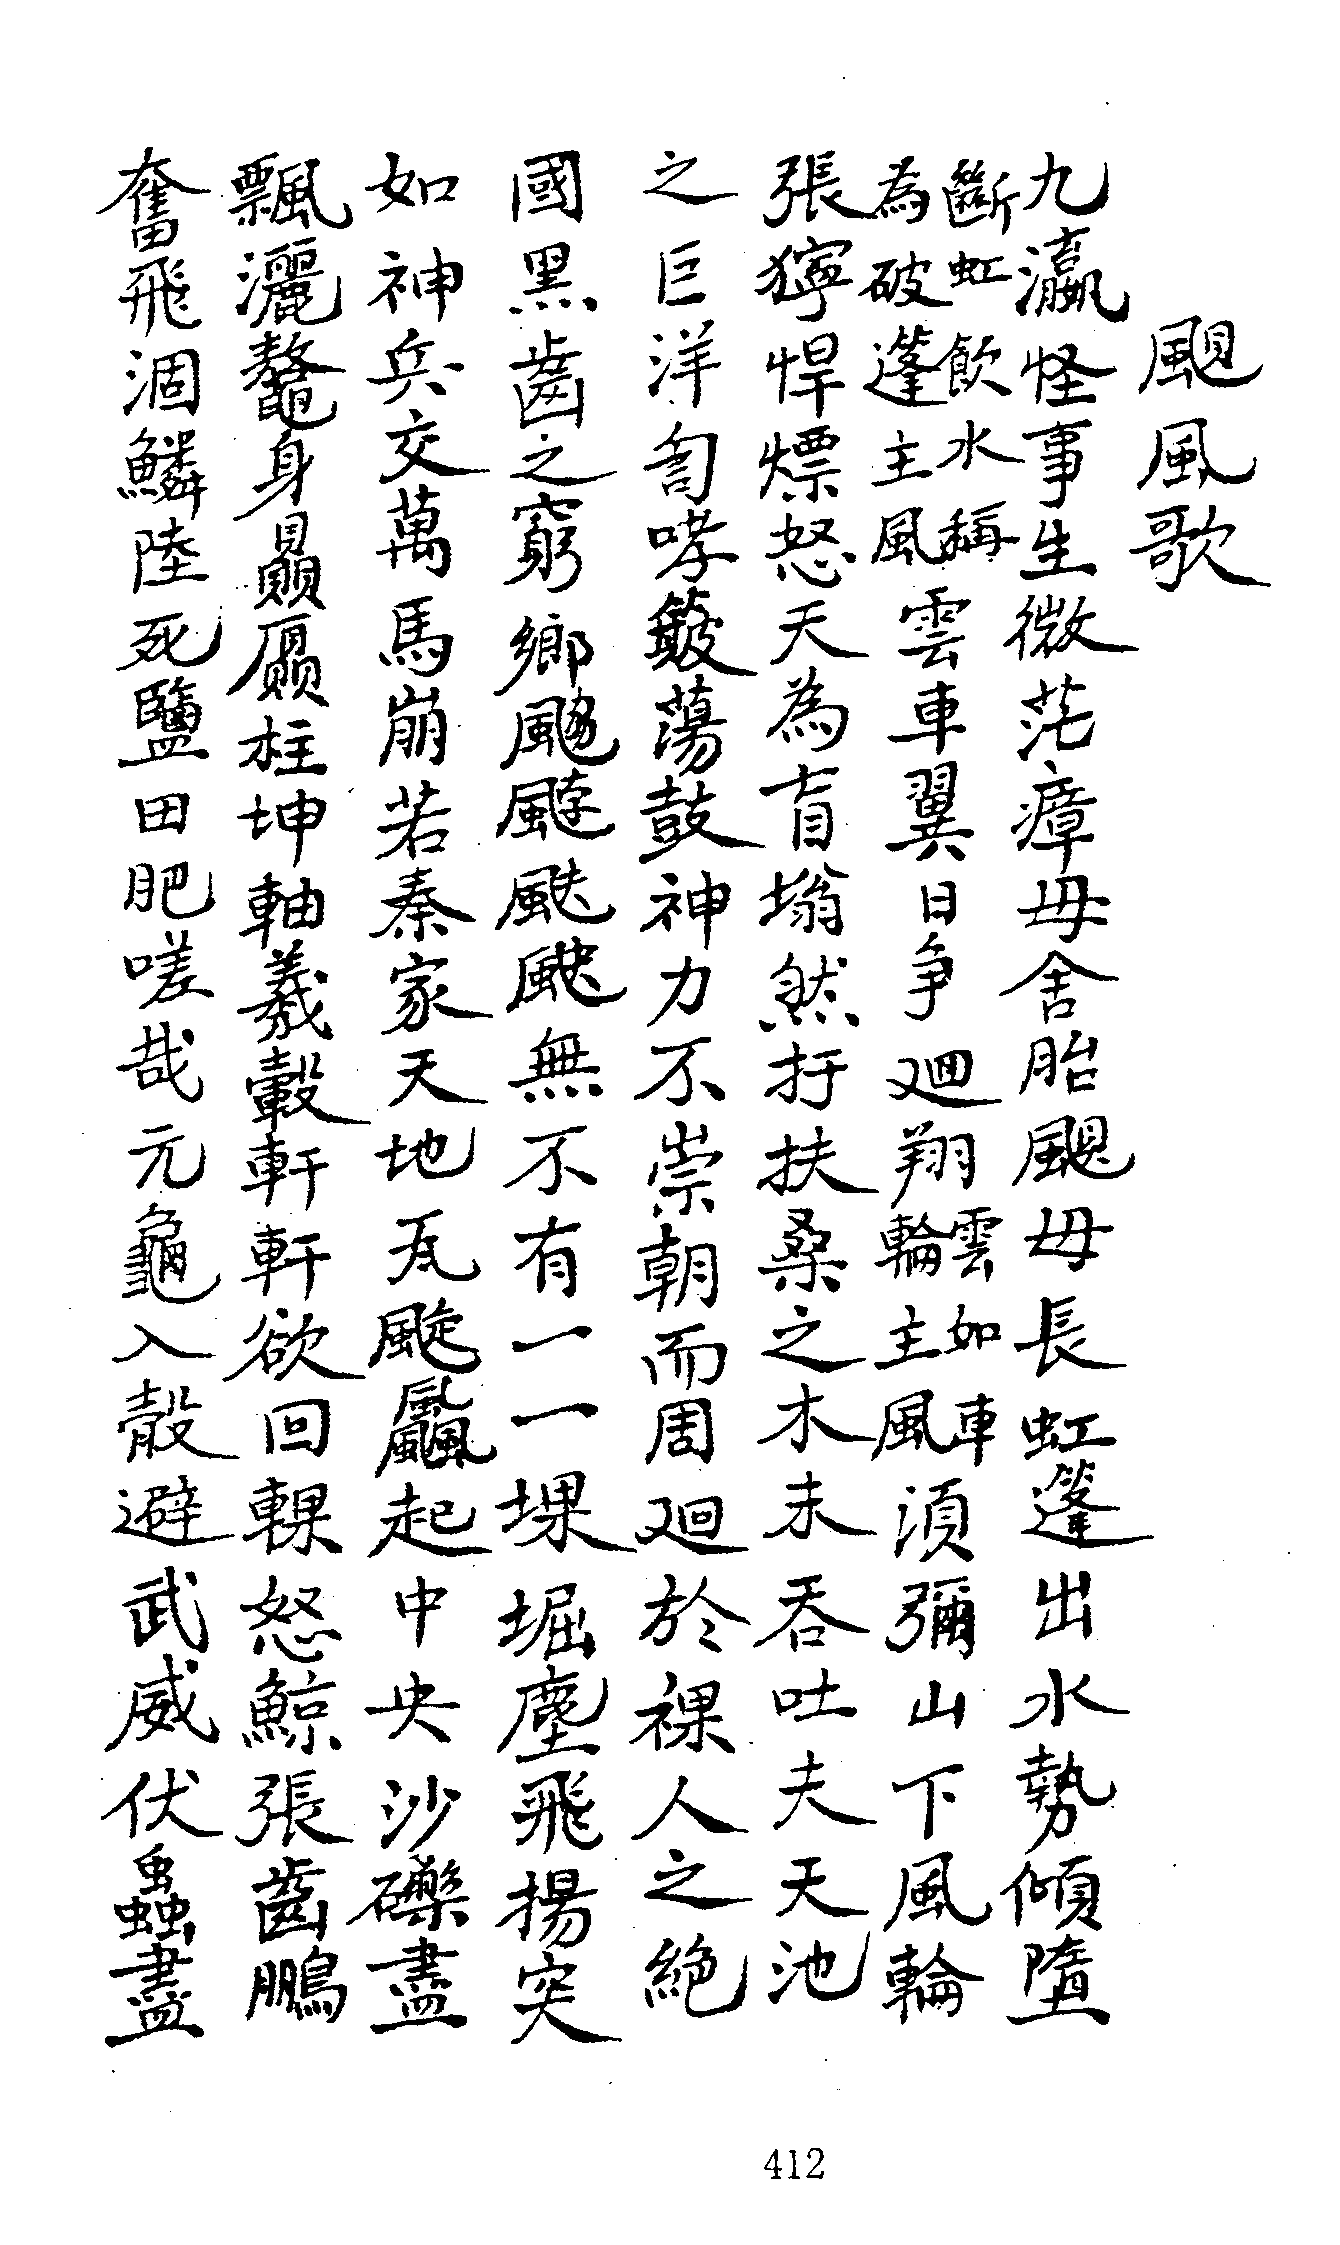 颶風歌
九瀛怪事生微茫瘴母舍胎颶母長虹篷出水勢傾墮
斷虹飲水稱
為破篷主風
雲車翼日争廻翔
雲如車
輪主風
湏彌山下風輪
張獰悍熛怒天為盲塕然扜扶桑之木末吞吐夫天池
之巨洋訇哮簸蕩鼓神力不崇朝而周廻於裸人之絶
國黑齒之窮鄉颺䬍颫颰無不有一一堁堀塵飛揚突
如神兵交萬馬崩若秦家天地瓦颴飍起中央沙礫盡
飄灑鼇身贔屭柱坤軸羲轂軒軒欲回輠怒鯨張齒鵬
奮飛涸鱗陸死鹽田肥嗟哉元龜入殻避武威伏蟲盡
412